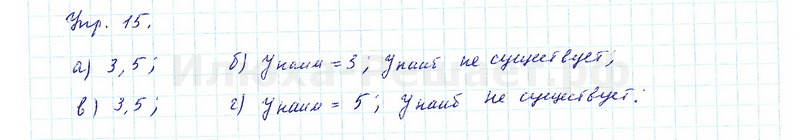 Упр. 15.
а) 3,5; б) Унаим = 3; Унаиб не существует;
в) 3,5; г) Унаим = 5; Унаиб не существует.